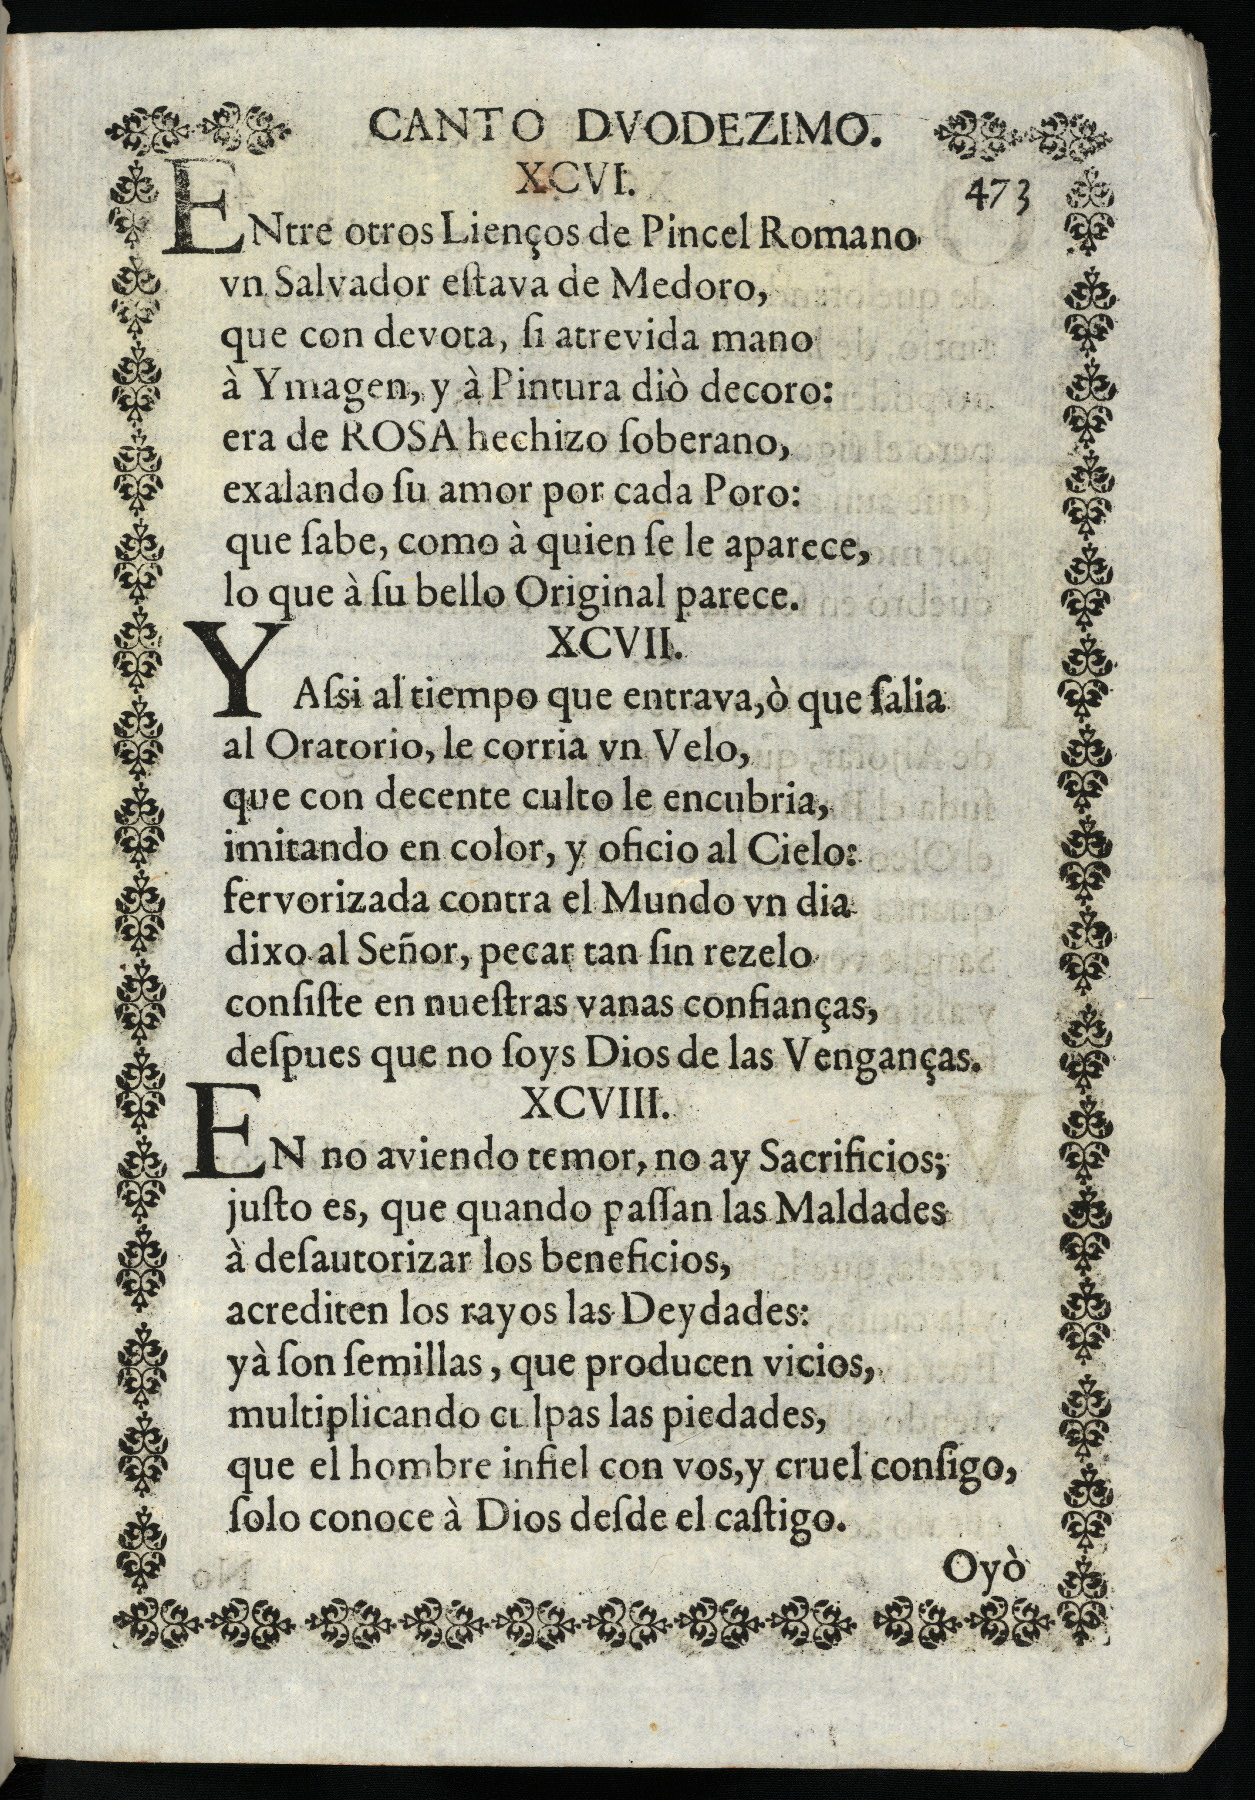 CANTO DVODEZIMO.
XCVI.
473
ENtre otros Lienços de Pincel Romano
vn Salvador eſtava de Medoro,
que con devota, ſi atrevida mano
à Ymagen, y à Pintura diò decoro:
era de ROSA hechizo ſoberano,
exalando ſu amor por cada Poro:
que ſabe, como à quien ſe le aparece,
lo que à ſu bello Original parece.
XCVII.
Y Aſsi al tiempo que entrava, ò que ſalia
al Oratorio, le corria vn Velo,
que con decente culto le encubria,
imitando en color, y oficio al Cielo:
fervorizada contra el Mundo vn dia
dixo al Señor, pecar tan ſin rezelo
conſiſte en nueſtras vanas confianças,
deſpues que no ſoys Dios de las Venganças.
XCVIII.
EN no aviendo temor, no ay Sacrificios;
juſto es, que quando paſſan las Maldades
à deſautorizar los beneficios,
acrediten los rayos las Deydades:
yà ſon ſemillas, que producen vicios,
multiplicando culpas las piedades,
que el hombre infiel con vos, y cruel conſigo,
ſolo conoce à Dios deſde el caſtigo.
Oyò